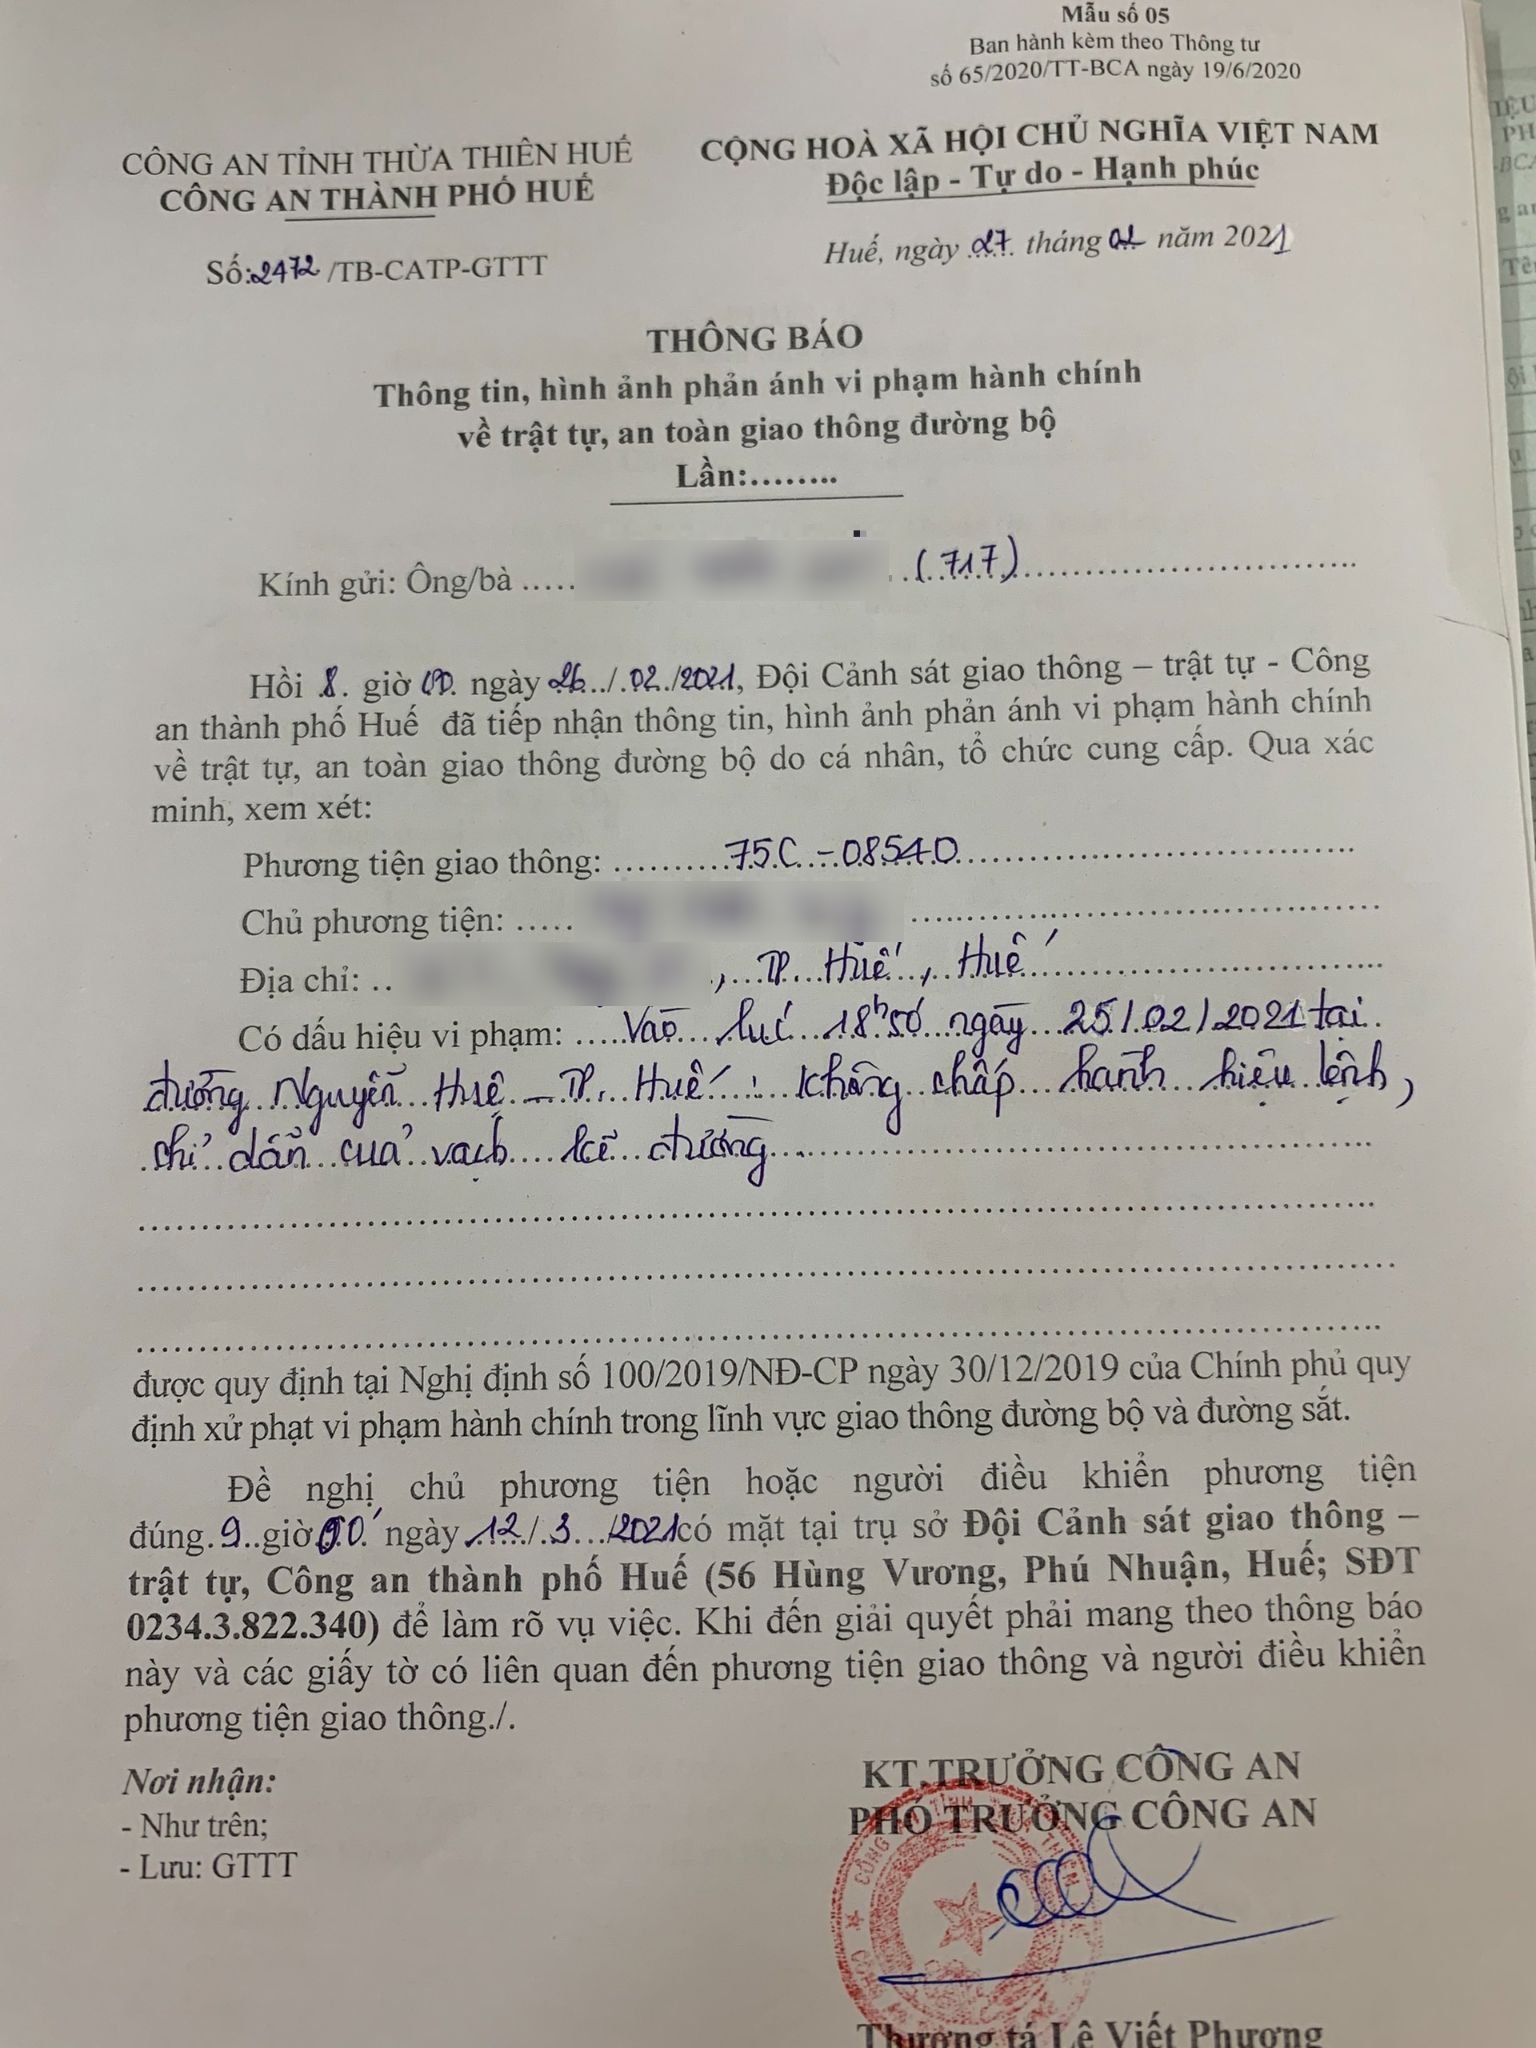 Mẫu số 05
Ban hành kèm theo Thông tư
số 65/2020/TT-BCA ngày 19/6/2020
CÔNG AN TỈNH THỪA THIÊN HUẾ
CÔNG AN THÀNH PHỐ HUẾ
CỘNG HOÀ XÃ HỘI CHỦ NGHĨA VIỆT NAM
Độc lập - Tự do - Hạnh phúc
Số:2472/TB-CATP-GTTT
Huế, ngày 27 tháng 02 năm 2021
THÔNG BÁO
Thông tin, hình ảnh phản ánh vi phạm hành chính
về trật tự, an toàn giao thông đường bộ
Lần:........
Kính gửi: Ông/bà ..... (717)
Hồi 8 giờ 00 ngày 26/02/2021, Đội Cảnh sát giao thông – trật tự - Công
an thành phố Huế đã tiếp nhận thông tin, hình ảnh phản ánh vi phạm hành chính
về trật tự, an toàn giao thông đường bộ do cá nhân, tổ chức cung cấp. Qua xác
minh, xem xét:
Phương tiện giao thông: 75C-08540
Chủ phương tiện: .....
Địa chỉ: .. , TP. Huế, Huế
Có dấu hiệu vi phạm: Vào lúc 18h50 ngày 25/02/2021 tại
đường Nguyễn Huệ - TP. Huế: không chấp hành hiệu lệnh,
chỉ dẫn của vạch kẻ đường
được quy định tại Nghị định số 100/2019/NĐ-CP ngày 30/12/2019 của Chính phủ quy
định xử phạt vi phạm hành chính trong lĩnh vực giao thông đường bộ và đường sắt.
Đề nghị chủ phương tiện hoặc người điều khiển phương tiện
đúng 9 giờ 00' ngày 12/3/2021 có mặt tại trụ sở Đội Cảnh sát giao thông –
trật tự, Công an thành phố Huế (56 Hùng Vương, Phú Nhuận, Huế; SĐT
0234.3.822.340) để làm rõ vụ việc. Khi đến giải quyết phải mang theo thông báo
này và các giấy tờ có liên quan đến phương tiện giao thông và người điều khiển
phương tiện giao thông./.
Nơi nhận:
- Như trên;
- Lưu: GTTT
KT.TRƯỞNG CÔNG AN
PHÓ TRƯỞNG CÔNG AN
Thượng tá Lê Viết Phương